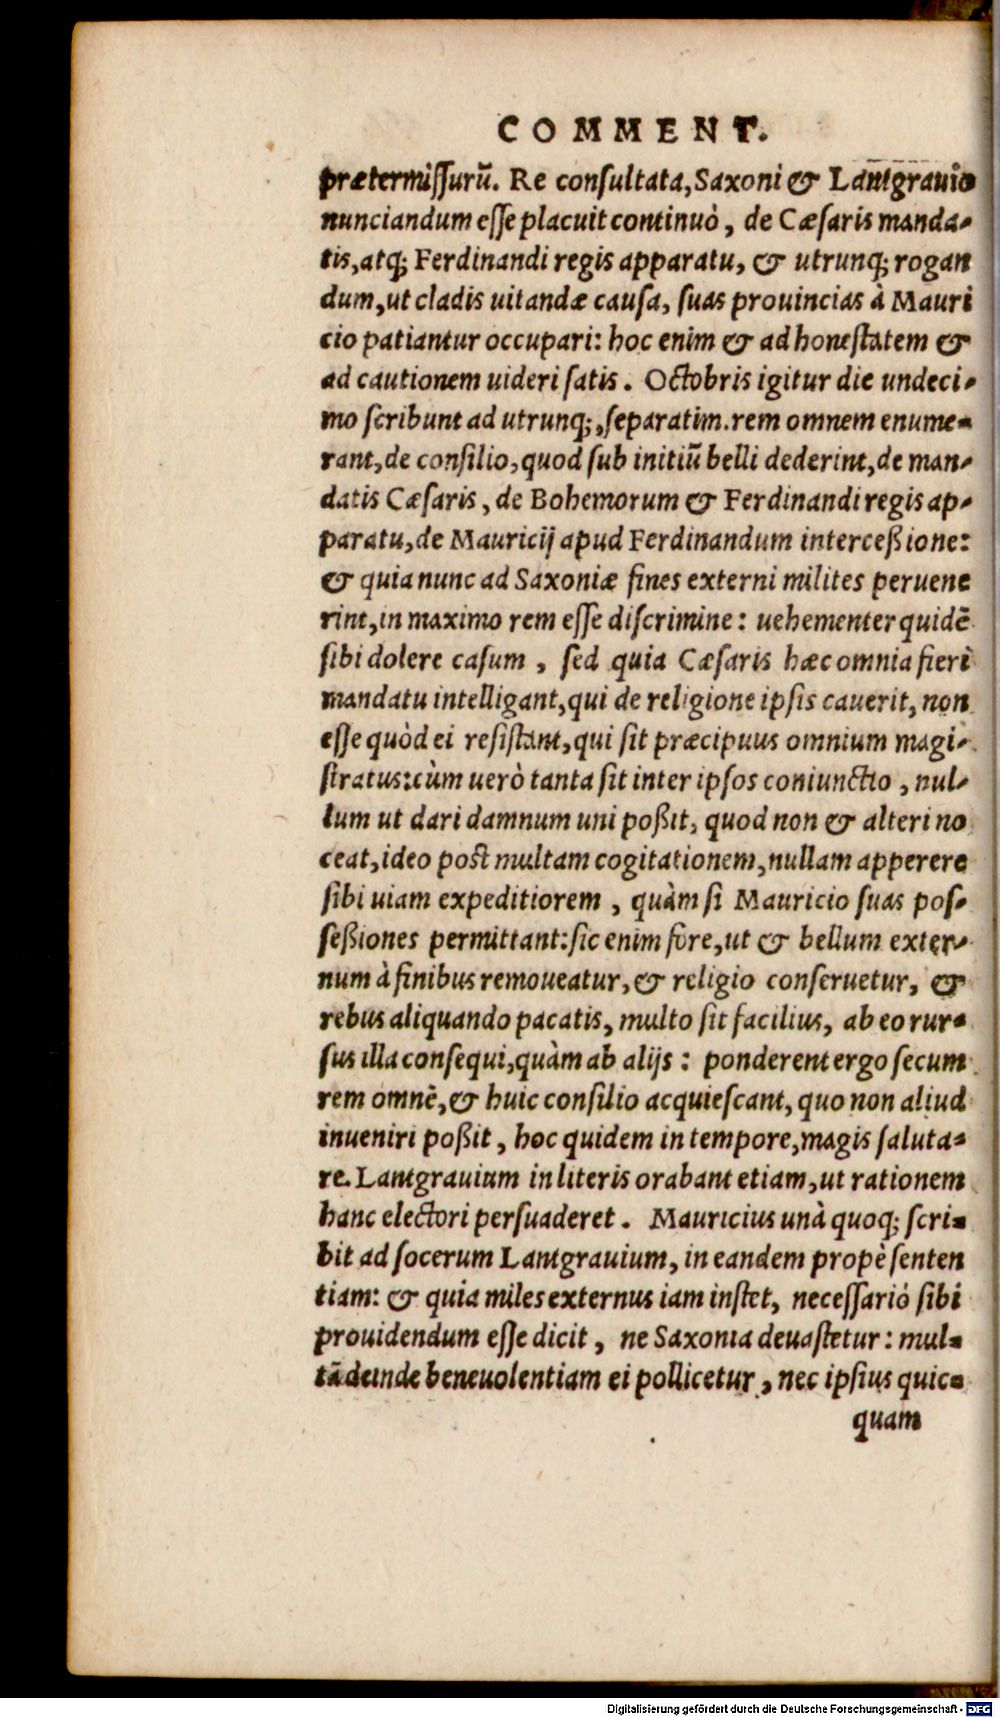 COMMENT.
prætermiſſurũ. Re conſultata, Saxoni & Lantgrauio
nunciandum eſſe placuit continuò, de Cæſaris manda-
tis, atq; Ferdinandi regis apparatu, & utrunq; rogan
dum, ut cladis uitandæ cauſa, ſuas prouincias à Mauri
cio patiantur occupari: hoc enim & ad honeſtatem &
ad cautionem uideri ſatis. Octobris igitur die undeci-
mo ſcribunt ad utrunq;, ſeparatim. rem omnem enume-
rant, de conſilio, quod ſub initiũ belli dederint, de man-
datis Cæſaris, de Bohemorum & Ferdinandi regis ap-
paratu, de Mauricij apud Ferdinandum interceßione:
& quia nunc ad Saxoniæ fines externi milites peruene
rint, in maximo rem eſſe diſcrimine: uehementer quidẽ
ſibi dolere caſum, ſed quia Cæſaris hæc omnia fieri
mandatu intelligant, qui de religione ipſis cauerit, non
eſſe quòd ei reſiſtant, qui ſit præcipuus omnium magi-
ſtratus: cùm uerò tanta ſit inter ipſos coniunctio, nul-
lum ut dari damnum uni poßit, quod non & alteri no
ceat, ideo poſt multam cogitationem, nullam apperere
ſibi uiam expeditiorem, quàm ſi Mauricio ſuas poſ-
ſeßiones permittant: ſic enim fore, ut & bellum exter-
num à finibus remoueatur, & religio conſeruetur, &
rebus aliquando pacatis, multo ſit facilius, ab eo rur-
ſus illa conſequi, quàm ab alijs: ponderent ergo ſecum
rem omnẽ, & huic conſilio acquieſcant, quo non aliud
inueniri poßit, hoc quidem in tempore, magis ſaluta-
re. Lantgrauium in literis orabant etiam, ut rationem
hanc electori perſuaderet. Mauricius unà quoq; ſcri-
bit ad ſocerum Lantgrauium, in eandem propè ſenten
tiam: & quia miles externus iam inſtet, neceſſariò ſibi
prouidendum eſſe dicit, ne Saxonia deuaſtetur: mul-
tã deinde beneuolentiam ei pollicetur, nec ipſius quic-
quam
Digitalisierung gefördert durch die Deutsche Forschungsgemeinschaft - DFG